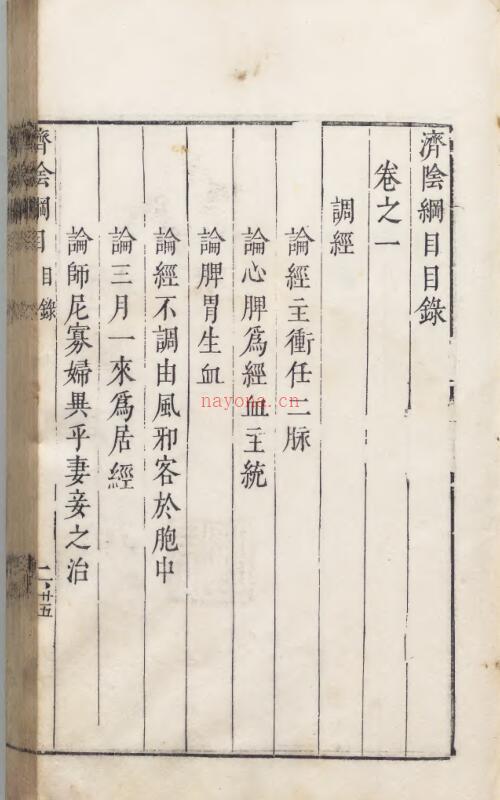 濟陰綱目目錄
卷之一
調經
論經主衝任二脉
論心脾爲經血主統
論脾胃生血
論經不調由風邪客於胞中
論三月一來爲居經
論師尼寡婦異乎妻妾之治
濟陰綱目 目錄
nayona.cn